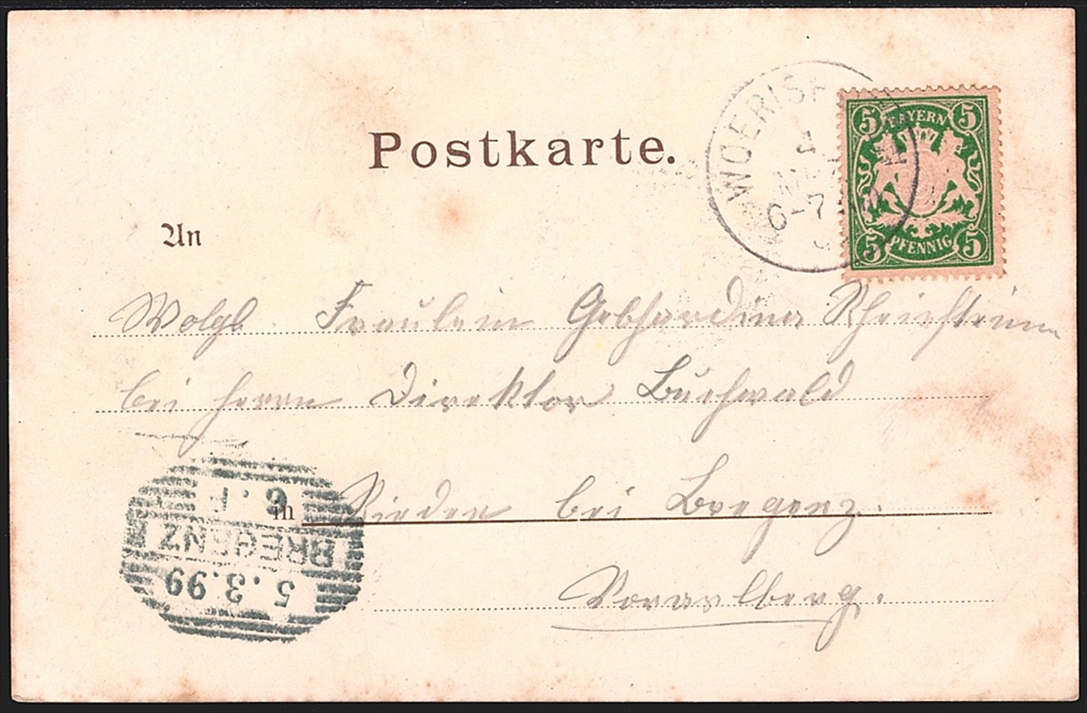 Postkarte.
WOERISH
4
6-7
5 BAYERN 5
5 PFENNIG 5
An
Wolgb. Fräulein Gebhardina
bei Herrn Direktor Buchwald
in Rieden bei Bregenz.
Vorarlberg.
6. F
BREGENZ
5.3.99